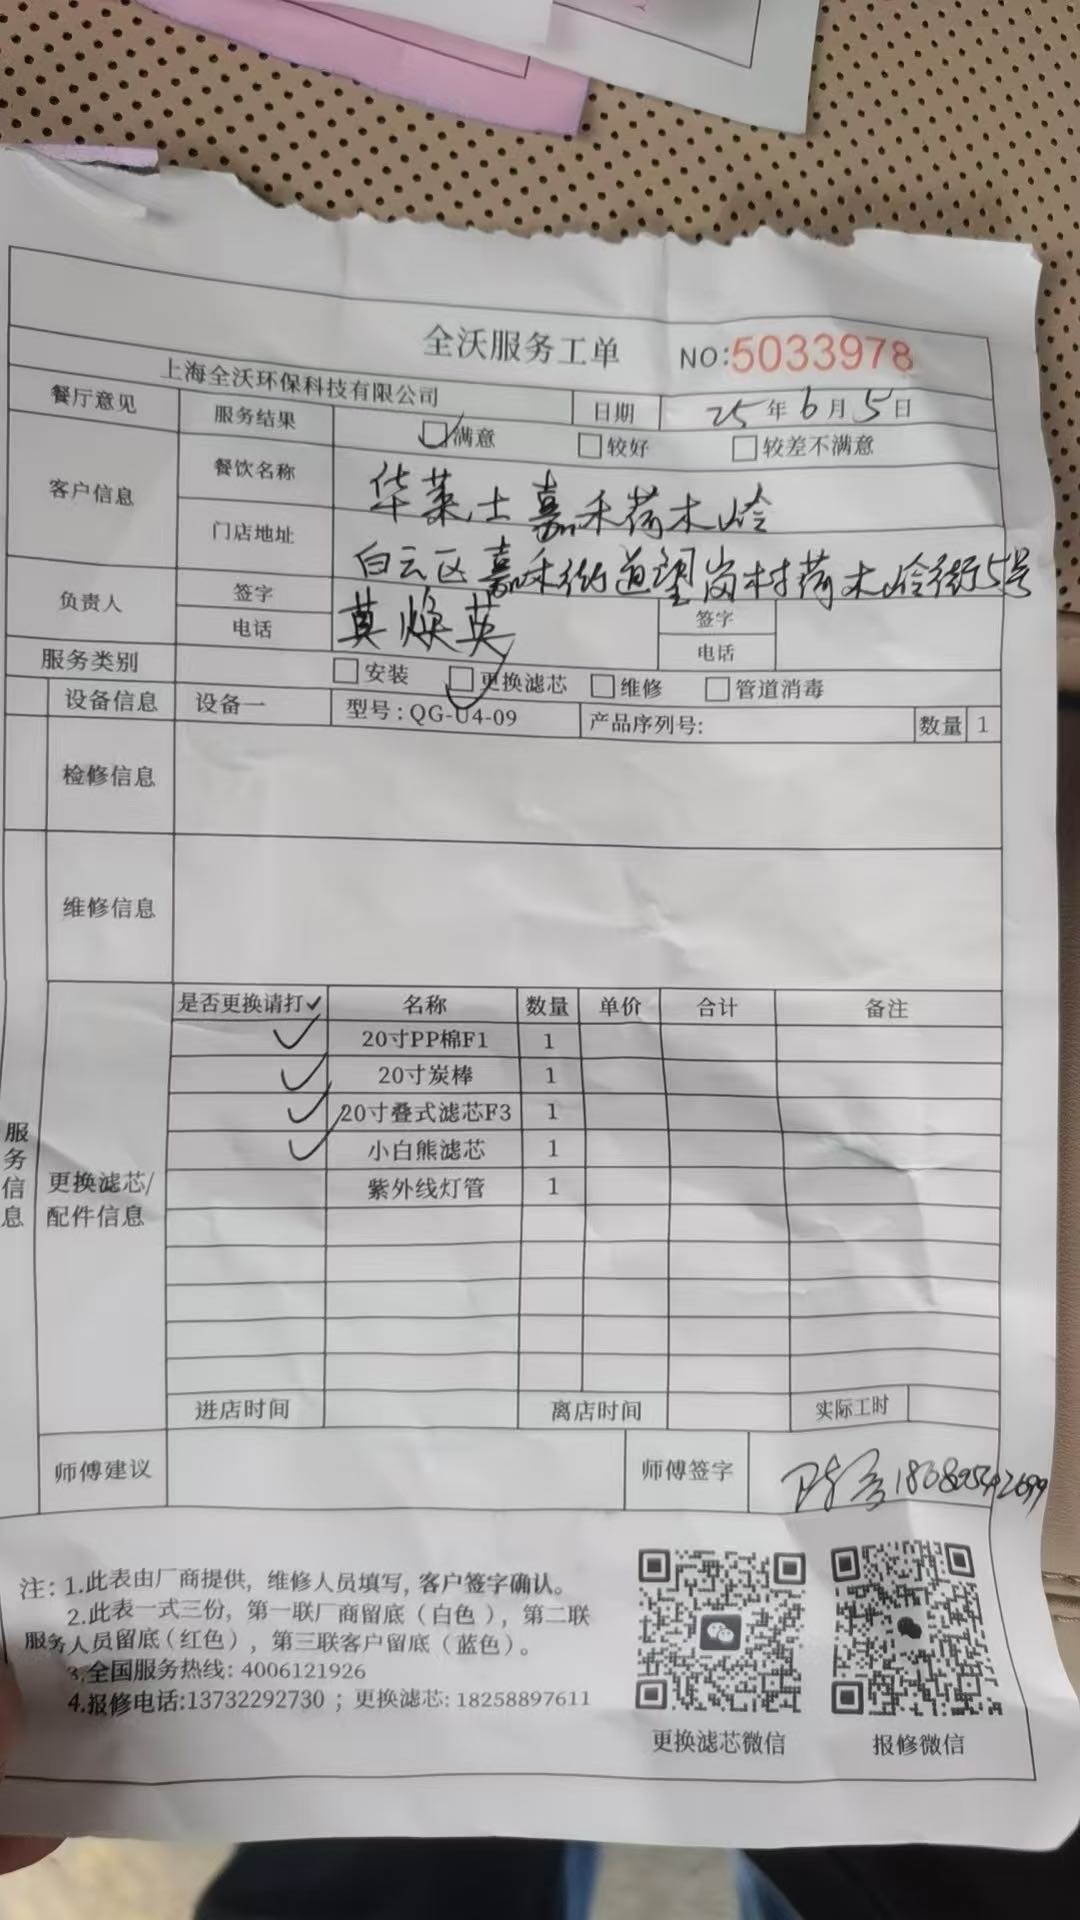 全沃服务工单 NO:5033978
上海全沃环保科技有限公司 日期 25年6月5日
餐厅意见 服务结果 满意 较好 较差不满意
客户信息 餐饮名称 华莱士嘉禾荷木岭
门店地址 白云区嘉禾街道望岗村荷木岭街5号
负责人 签字 莫焕英 签字
电话 电话
服务类别 安装 更换滤芯 维修 管道消毒
设备信息 设备一 型号:QG-U4-09 产品序列号: 数量 1
检修信息
维修信息
服务信息
更换滤芯/
配件信息
是否更换请打✓ 名称 数量 单价 合计 备注
✓ 20寸PP棉F1 1
✓ 20寸炭棒 1
✓ 20寸叠式滤芯F3 1
✓ 小白熊滤芯 1
紫外线灯管 1
进店时间 离店时间 实际工时
师傅建议 师傅签字
注: 1.此表由厂商提供, 维修人员填写, 客户签字确认。
2.此表一式三份, 第一联厂商留底(白色), 第二联
服务人员留底(红色), 第三联客户留底(蓝色)。
3.全国服务热线: 4006121926
4.报修电话:13732292730 ; 更换滤芯: 18258897611
更换滤芯微信 报修微信